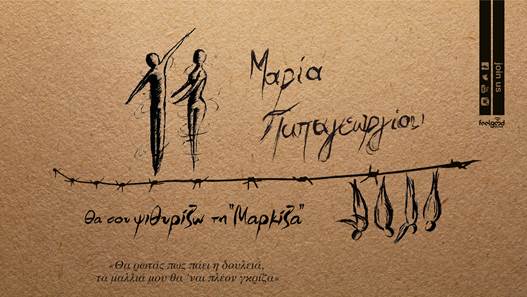 Μαρία
Παπαγεωργίου
θα σου ψιθυρίζω τη "Μαρκίζα"
«Θα ρωτάς πως πάει η δουλειά,
τα μαλλιά μου θα 'ναι πλέον γκρίζα»
join us
feelgood